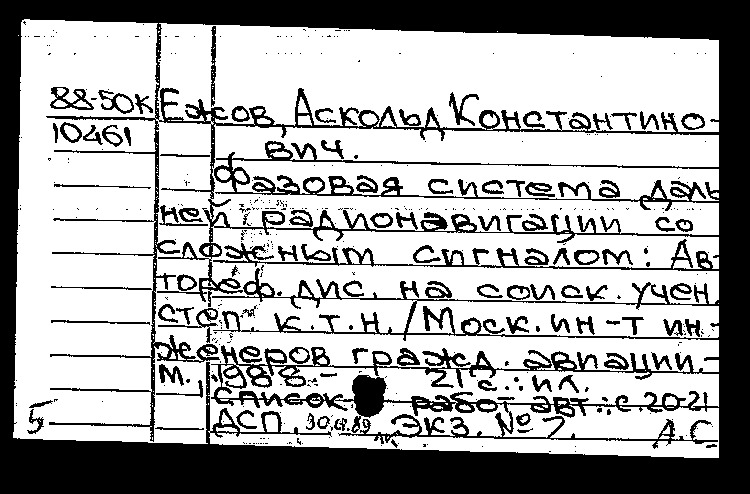 88-50к Ежов, Аскольд Константино-
10461 вич.
Фазовая система даль
ней радионавигации со
сложным сигналом: Ав-
тореф. дис. на соиск. учен.
степ. к.т.н. / Моск. ин-т ин-
женеров гражд. авиации.-
М., 1988.- 21 с.: ил.
Список работ авт.: с. 20-21
5 ДСП. Экз. № 7. А.С